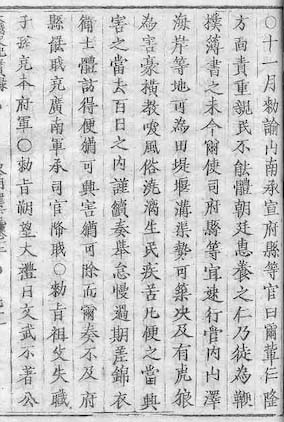 ○十一月勅諭山南承宣府縣等官曰爾輩仁隆
方面責重親民不能體朝廷惠養之仁乃徒為鞭
撲簿書之末今爾使司府縣等宜速行管内山澤
海岸等地可為田堤堰溝渠勢可築决及有虎狼
為害豪横教唆風俗澆漓生民疾苦凡便之當興
害之當去百日之内謹續奏舉怠慢過期差錦衣
衛士體訪得便猶可興害猶可除而爾奏不及府
縣罷職充廣南軍承司官降職○勅旨祖父失職
子孫充本府軍○勅旨朔望大禮日文武不著公